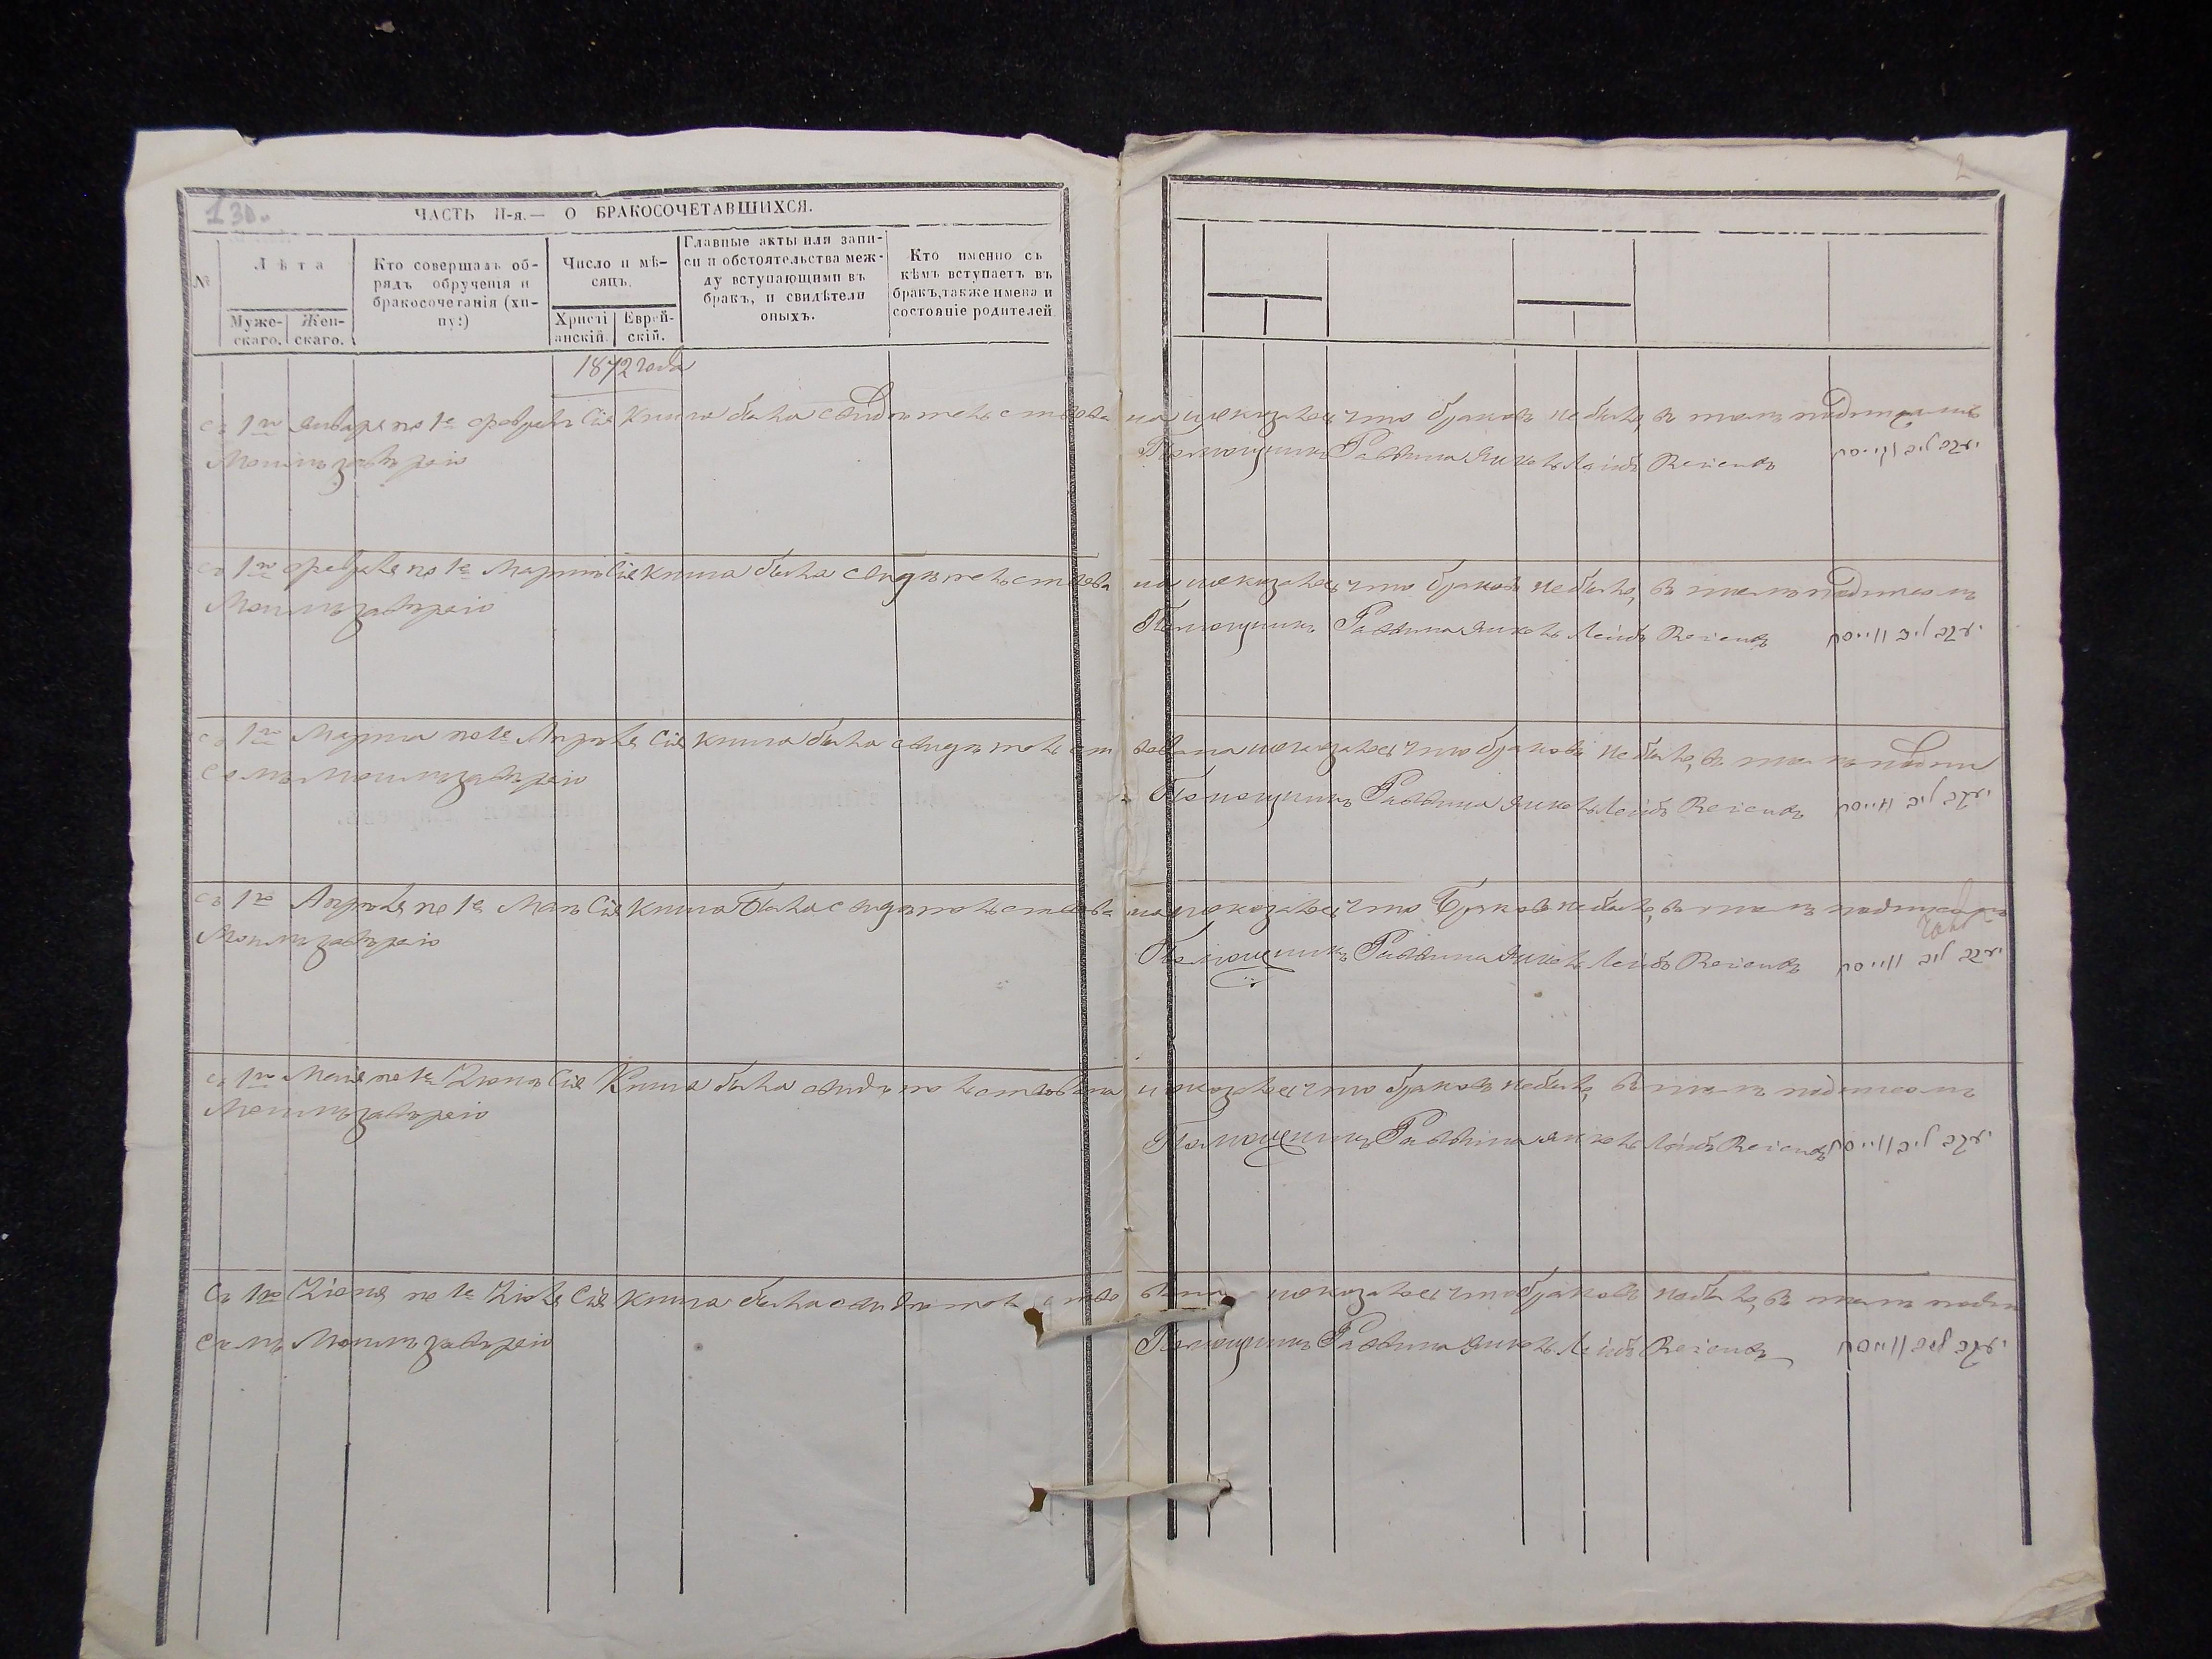 130.
2
ЧАСТЬ II-я.— О БРАКОСОЧЕТАВШИХСЯ.
№
Лѣта
Муже-
скаго.
Жен-
скаго.
Кто совершалъ об-
рядъ обрученія и
бракосочетанія (хи-
пу:)
Число и мѣ-
сяцъ.
Христі
анскій.
Еврей-
скій.
Главные акты или запи-
си и обстоятельства меж-
ду вступающими въ
бракъ, и свидѣтели
оныхъ.
Кто именно съ
кѣмъ вступаетъ въ
бракъ, также имена и
состояніе родителей
1872 года
съ 1го Января по 1е февраль Сія Книга была свидѣтельствована и оказалось что браковъ не было, въ томъ подписомъ
Моимъ завѣряю Помощникъ Раввина Янкель Лейбъ
съ 1го февраля по 1е Мартъ Сія Книга была свидѣтельствована и оказалось что браковъ не было, въ томъ подписомъ
Моимъ завѣряю Помощникъ Раввина Янкель Лейбъ
съ 1го Марта по 1е Апрѣля Сія книга была свидѣтельствована и оказалось что браковъ не было, въ томъ подпи
сомъ моимъ завѣряю Помощникъ Раввина Янкель Лейбъ
съ 1го Апрѣля по 1е Маи Сія Книга была свидѣтельствована и оказалось что Браковъ не было, въ томъ подписомъ
Моимъ завѣряю Помощникъ Раввина Янкель Лейбъ
съ 1го Маія по 1е Іюнь Сія Книга была свидѣтельствована и оказалось что браковъ не было, въ томъ подписомъ
Моимъ завѣряю Помощникъ Раввина Янкель Лейбъ
Съ 1го Іюня по 1е Іюля Сія книга была свидѣтельствована и оказалось что браковъ не было, въ томъ подпи
сомъ Моимъ завѣряю Помощникъ Раввина Янкель Лейбъ